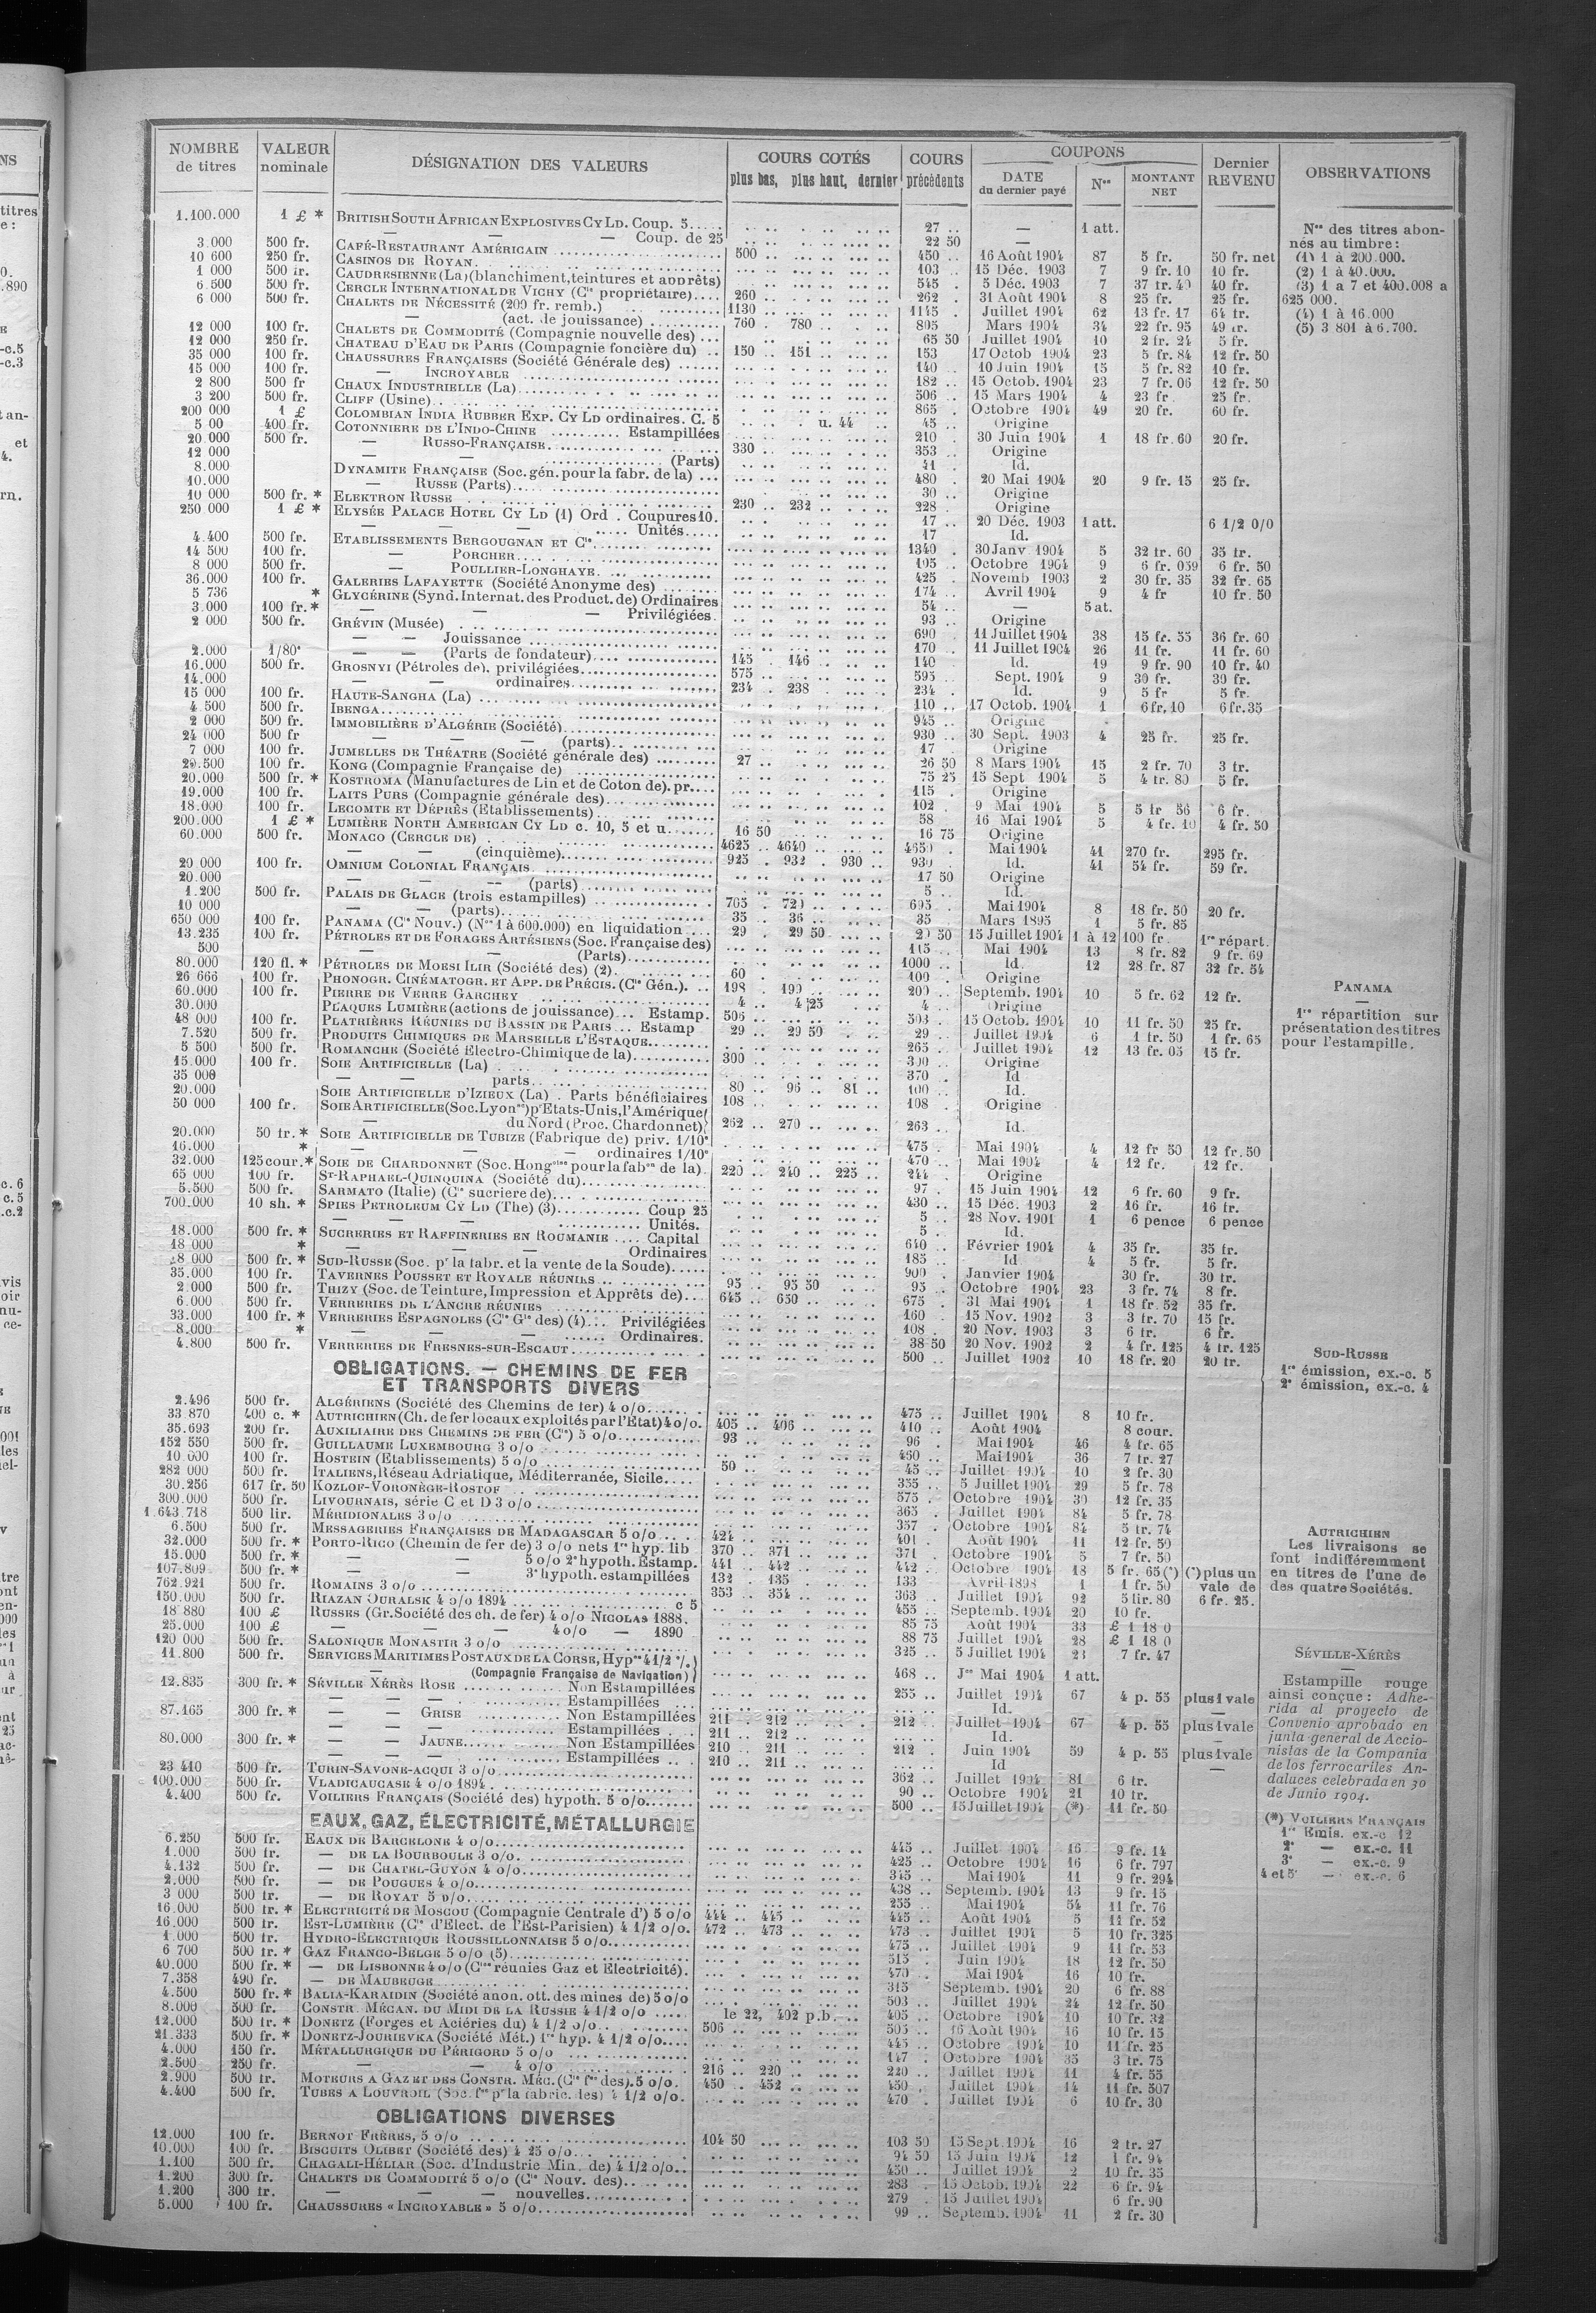 NOMBRE de titres | VALEUR nominale | DÉSIGNATION DES VALEURS | COURS COTÉS plus bas, plus haut, dernier | COURS précédents | COUPONS DATE du dernier payé | Nos | MONTANT NET | Dernier REVENU | OBSERVATIONS
1.100.000 1 £ * BRITISH SOUTH AFRICAN EXPLOSIVES CY LD. Coup. 5..... 27 .. — 1 att.
— — — Coup. de 25 22 50 —
3.000 500 fr. CAFÉ-RESTAURANT AMÉRICAIN 500 .. 450 .. 16 Août 1904 87 5 fr. 50 fr. net
10 600 250 fr. CASINOS DE ROYAN. 103 .. 15 Déc. 1903 7 9 fr. 10 10 fr.
1 000 500 fr. CAUDRESIENNE (La) (blanchiment, teintures et apprêts) 545 .. 5 Déc. 1903 7 37 fr. 40 40 fr.
6.500 500 fr. CERCLE INTERNATIONAL DE VICHY (Cie propriétaire).... 260 262 . 31 Août 1904 8 25 fr. 25 fr.
6 000 500 fr. CHALETS DE NÉCESSITÉ (200 fr. remb.) 1130 1145 . Juillet 1904 62 13 fr. 17 64 fr.
— (act. de jouissance) 760 . 780 805 Mars 1904 34 22 fr. 95 49 fr.
12 000 100 fr. CHALETS DE COMMODITÉ (Compagnie nouvelle des) ... 65 50 Juillet 1904 10 2 fr. 24 5 fr.
12 000 250 fr. CHATEAU D'EAU DE PARIS (Compagnie foncière du) .. 150 .. 151 153 17 Octob 1904 23 5 fr. 84 12 fr. 50
35 000 100 fr. CHAUSSURES FRANÇAISES (Société Générale des) ...... 140 .. 10 Juin 1904 15 5 fr. 82 10 fr.
15 000 100 fr. — INCROYABLE 182 .. 15 Octob. 1904 23 7 fr. 06 12 fr. 50
2 800 500 fr CHAUX INDUSTRIELLE (La) 506 .. 15 Mars 1904 4 23 fr. 25 fr.
3 200 500 fr. CLIFF (Usine) 865 . Octobre 1904 49 20 fr. 60 fr.
200 000 1 £ COLOMBIAN INDIA RUBBER EXP. CY LD ordinaires. C. 5 u. 44 45 .. Origine
5 00 400 fr. COTONNIERE DE L'INDO-CHINE Estampillées 210 . 30 Juin 1904 1 18 fr. 60 20 fr.
20.000 500 fr. — RUSSO-FRANÇAISE 330 353 .. Origine
12 000 — — (Parts) 41 . Id.
8.000 DYNAMITE FRANÇAISE (Soc. gén. pour la fabr. de la) ... 480 . 20 Mai 1904 20 9 fr. 15 25 fr.
10.000 — RUSSE (Parts) 30 .. Origine
10 000 500 fr. * ELEKTRON RUSSE 230 .. 232 228 . Origine
250 000 1 £ * ELYSÉE PALACE HOTEL CY LD (1) Ord . Coupures 10. 17 .. 20 Déc. 1903 1 att. 6 1/2 0/0
— — — Unités. 17 Id.
4.400 500 fr. ETABLISSEMENTS BERGOUGNAN ET Cie 1340 . 30 Janv 1904 5 32 fr. 60 35 fr.
14 500 100 fr. — PORCHER 105 .. Octobre 1904 9 6 fr. 039 6 fr. 50
8 000 500 fr. — POULLIER-LONGHAYE. 425 . Novemb 1903 2 30 fr. 35 32 fr. 65
36.000 100 fr. GALERIES LAFAYETTE (Société Anonyme des) 174 .. Avril 1904 9 4 fr 10 fr. 50
5 736 * GLYCÉRINE (Synd. Internat. des Product. de) Ordinaires 54 .. — 5 at.
3.000 100 fr. * — — — Privilégiées. 93 .. Origine
2 000 500 fr. GRÉVIN (Musée) 690 . 11 Juillet 1904 38 15 fr. 55 36 fr. 60
— — Jouissance 170 .. 11 Juillet 1904 26 11 fr. 11 fr. 60
2.000 1/80e — — (Parts de fondateur) 145 . 146 140 . Id. 19 9 fr. 90 10 fr. 40
16.000 500 fr. GROSNYI (Pétroles de). privilégiées 575 .. 595 .. Sept. 1904 9 30 fr. 30 fr.
14.000 — — ordinaires 234 .. 238 234 . Id. 9 5 fr 5 fr.
15 000 100 fr. HAUTE-SANGHA (La) 110 .. 17 Octob. 1904 1 6 fr. 10 6 fr. 35
4 500 500 fr. IBENGA 945 .. Origine
2 000 500 fr. IMMOBILIÈRE D'ALGÉRIE (Société) 930 .. 30 Sept. 1903 4 25 fr. 25 fr.
24 000 500 fr — — — (parts) 17 . Origine
7 000 100 fr. JUMELLES DE THÉATRE (Société générale des) 27 .. 26 50 8 Mars 1904 15 2 fr. 70 3 fr.
29.500 100 fr. KONG (Compagnie Française de) 75 25 15 Sept 1904 5 4 fr. 80 5 fr.
20.000 500 fr. * KOSTROMA (Manufactures de Lin et de Coton de). pr.... 115 . Origine
19.000 100 fr. LAITS PURS (Compagnie générale des) 102 9 Mai 1904 5 5 fr. 56 6 fr.
18.000 100 fr. LECOMTE ET DÉPRÈS (Etablissements) 58 16 Mai 1904 5 4 fr. 10 4 fr. 50
200.000 1 £ * LUMIÈRE NORTH AMERICAN CY LD c. 10, 5 et u. 16 50 16 75 Origine
60.000 500 fr. MONACO (CERCLE DE) 4625 .. 4640 4650 . Mai 1904 41 270 fr. 295 fr.
— — (cinquième) 925 . 932 . 930 .. 930 Id. 41 54 fr. 59 fr.
20 000 100 fr. OMNIUM COLONIAL FRANÇAIS. 17 50 Origine
20.000 — — — (parts) 5 .. Id.
1.200 500 fr. PALAIS DE GLACE (trois estampilles) 705 . 720 695 . Mai 1904 8 18 fr. 50 20 fr.
10 000 — — (parts) 35 .. 36 35 . Mars 1895 1 5 fr. 85
650 000 100 fr. PANAMA (Cie Nouv.) (Nos 1 à 600.000) en liquidation ... 29 . 29 50 29 50 15 Juillet 1904 1 à 12 100 fr. 1re répart.
13.235 100 fr. PÉTROLES ET DE FORAGES ARTÉSIENS (Soc. Française des) 115 . Mai 1904 13 8 fr. 82 9 fr. 69
500 — — (Parts) 1000 .. Id. 12 28 fr. 87 32 fr. 54
80.000 120 fl. * PÉTROLES DE MOESI ILIR (Société des) (2). 60 100 . Origine
26 666 100 fr. PHONOGR. CINÉMATOGR. ET APP. DE PRÉCIS. (Cie Gén.). 198 . 199 200 .. Septemb. 1904 10 5 fr. 62 12 fr.
60.000 100 fr. PIERRE DE VERRE GARCHEY 4 .. 4 25 4 .. Origine
30.000 PLAQUES LUMIÈRE (actions de jouissance) ... Estamp. 506 .. 503 . 15 Octob. 1904 10 11 fr. 50 25 fr.
48 000 100 fr. PLATRIÈRES RÉUNIES DU BASSIN DE PARIS ... Estamp 29 .. 29 50 29 .. Juillet 1904 6 1 fr. 50 1 fr. 65
7.520 500 fr. PRODUITS CHIMIQUES DE MARSEILLE L'ESTAQUE 265 . Juillet 1904 12 13 fr. 05 15 fr.
5 500 500 fr. ROMANCHE (Société Electro-Chimique de la) 300 .. 300 Origine
15.000 100 fr. SOIE ARTIFICIELLE (La) 370 . Id
35 000 — — parts 80 .. 96 .. 81 .. 100 . Id.
20.000 SOIE ARTIFICIELLE D'IZIEUX (La) . Parts bénéficiaires 108 .. 108 . Origine
50 000 100 fr. SOIE ARTIFICIELLE (Soc. Lyonse) pr Etats-Unis, l'Amérique
du Nord (Proc. Chardonnet) 262 .. 270 263 . Id.
20.000 50 fr. * SOIE ARTIFICIELLE DE TUBIZE (Fabrique de) priv. 1/10e 475 . Mai 1904 4 12 fr 50 12 fr. 50
16.000 * — — — ordinaires 1/10e 470 .. Mai 1904 4 12 fr. 12 fr.
32.000 125 cour. * SOIE DE CHARDONNET (Soc. Hongoise pour la fabon de la). 220 .. 240 .. 225 .. 244 Origine
65 000 100 fr. ST-RAPHAEL-QUINQUINA (Société du) 97 . 15 Juin 1904 12 6 fr. 60 9 fr.
5.500 500 fr. SARMATO (Italie) (Cie sucriere de) 430 .. 15 Déc. 1903 2 16 fr. 16 fr.
700.000 10 sh. * SPIES PETROLEUM CY LD (The) (3) Coup 25 5 .. 28 Nov. 1901 1 6 pence 6 pence
— — — Unités. 5 . Id.
18.000 500 fr. * SUCRERIES ET RAFFINERIES EN ROUMANIE .... Capital 640 .. Février 1904 4 35 fr. 35 fr.
18 000 * — — — Ordinaires 185 .. Id 4 5 fr. 5 fr.
8 000 500 fr. * SUD-RUSSE (Soc. pr la fabr. et la vente de la Soude) 900 . Janvier 1904 30 fr. 30 fr.
35.000 100 fr. TAVERNES POUSSET ET ROYALE RÉUNIES 95 .. 95 50 95 . Octobre 1904 23 3 fr. 74 8 fr.
2 000 500 fr. THIZY (Soc. de Teinture, Impression et Apprêts de)... 645 .. 650 675 . 31 Mai 1904 1 18 fr. 52 35 fr.
6.000 500 fr. VERRERIES DE L'ANCRE RÉUNIES 160 . 15 Nov. 1902 3 3 fr. 70 15 fr.
33.000 100 fr. * VERRERIES ESPAGNOLES (Cie Gle des) (4)... Privilégiées 108 . 20 Nov. 1903 3 6 fr. 6 fr.
8.000 * — — — Ordinaires. 38 50 20 Nov. 1902 2 4 fr. 125 4 fr. 125
4.800 500 fr. VERRERIES DE FRESNES-SUR-ESCAUT 500 .. Juillet 1902 10 18 fr. 20 20 fr.
OBLIGATIONS. — CHEMINS DE FER
ET TRANSPORTS DIVERS
2.496 500 fr. ALGÉRIENS (Société des Chemins de fer) 4 o/o 475 .. Juillet 1904 8 10 fr.
33 870 400 c. * AUTRICHIEN (Ch. de fer locaux exploités par l'Etat) 4 o/o. 405 .. 406 410 . Août 1904 8 cour.
35.693 200 fr. AUXILIAIRE DES CHEMINS DE FER (Cie) 5 o/o 93 96 . Mai 1904 46 4 fr. 65
152 550 500 fr. GUILLAUME LUXEMBOURG 3 o/o 460 .. Mai 1904 36 7 fr. 27
10 000 100 fr. HOSTEIN (Etablissements) 5 o/o 50 45 .. Juillet 1904 10 2 fr. 30
282 000 500 fr. ITALIENS, Réseau Adriatique, Méditerranée, Sicile.... 355 .. 5 Juillet 1904 29 5 fr. 78
30.256 617 fr. 50 KOZLOF-VORONÈGE-ROSTOF 575 . Octobre 1904 30 12 fr. 35
300.000 500 fr. LIVOURNAIS, série C et D 3 o/o 365 . Juillet 1904 84 5 fr. 78
1.643.718 500 lir. MÉRIDIONALES 3 o/o 357 . Octobre 1904 84 5 fr. 74
6.500 500 fr. MESSAGERIES FRANÇAISES DE MADAGASCAR 5 o/o 424 401 . Août 1904 11 12 fr. 50
32.000 500 fr. * PORTO-RICO (Chemin de fer de) 3 o/o nets 1re hyp. lib 370 .. 371 371 . Octobre 1904 5 7 fr. 50
15.000 500 fr. * — — 5 o/o 2e hypoth. Estamp. 441 .. 442 442 . Octobre 1904 18 5 fr. 65 (*) (*) plus un
107.809 500 fr. * — — 3e hypoth. estampillées 132 . 135 133 Avril 1898 1 1 fr. 50 vale de
762.921 500 fr. ROMAINS 3 o/o 353 .. 354 363 . Juillet 1904 92 5 lir. 80 6 fr. 25.
150.000 500 fr. RIAZAN OURALSK 4 o/o 1894 c 5 455 .. Septemb. 1904 20 10 fr.
18 880 100 £ RUSSES (Gr. Société des ch. de fer) 4 o/o NICOLAS 1888. 85 75 Août 1904 33 £ 1 18 0
25.000 100 £ — — — 4 o/o — 1890 88 75 Juillet 1904 28 £ 1 18 0
120 000 500 fr. SALONIQUE MONASTIR 3 o/o 325 .. 5 Juillet 1904 23 7 fr. 47
11.800 500 fr. SERVICES MARITIMES POSTAUX DE LA CORSE, Hypre 4 1/2 %
— (Compagnie Française de Navigation) 468 .. Jce Mai 1904 1 att.
12.835 300 fr. * SÉVILLE XÉRÈS ROSE Non Estampillées 255 .. Juillet 1904 67 4 p. 55 plus 1 vale
— — — Estampillées Id. —
87.165 300 fr. * — — GRISE Non Estampillées 211 .. 212 212 . Juillet 1904 67 4 p. 55 plus 1 vale
— — — Estampillées 211 .. 212 Id. —
80.000 300 fr. * — — JAUNE Non Estampillées 210 .. 211 212 . Juin 1904 59 4 p. 55 plus 1 vale
— — — Estampillées 210 .. 211 Id —
23 410 500 fr. TURIN-SAVONE-ACQUI 3 o/o 362 . Juillet 1904 81 6 fr.
100.000 500 fr. VLADICAUCASE 4 o/o 1894 90 .. Octobre 1904 21 10 fr.
4.400 500 fr. VOILIERS FRANÇAIS (Société des) hypoth. 5 o/o 500 .. 15 Juillet 1904 (*) 11 fr. 50
EAUX, GAZ, ÉLECTRICITÉ, MÉTALLURGIE
6.250 500 fr. EAUX DE BARCELONE 4 o/o 445 .. Juillet 1904 15 9 fr. 14
1.000 500 fr. — DE LA BOURBOULE 3 o/o 425 .. Octobre 1904 16 6 fr. 797
4.132 500 fr. — DE CHATEL-GUYON 4 o/o 345 .. Mai 1904 11 9 fr. 294
2.000 500 fr. — DE POUGUES 4 o/o 438 .. Septemb. 1904 13 9 fr. 15
3 000 500 fr. — DE ROYAT 5 o/o 255 .. Mai 1904 54 11 fr. 76
16.000 500 fr. * ELECTRICITÉ DE MOSCOU (Compagnie Centrale d') 5 o/o 444 .. 445 445 .. Août 1904 5 11 fr. 52
16.000 500 fr. EST-LUMIÈRE (Cie d'Elect. de l'Est-Parisien) 4 1/2 o/o. 472 .. 473 473 .. Juillet 1904 5 10 fr. 325
1.000 500 fr. HYDRO-ÉLECTRIQUE ROUSSILLONNAISE 5 o/o 475 .. Juillet 1904 9 11 fr. 53
6 700 500 fr. * GAZ FRANCO-BELGE 5 o/o (5) 515 . Juin 1904 18 12 fr. 50
40.000 500 fr. * — DE LISBONNE 4 o/o (Cies réunies Gaz et Electricité). 470 . Mai 1904 16 10 fr.
7.358 490 fr. — DE MAUBEUGE 315 Septemb. 1904 20 6 fr. 88
4.500 500 fr. * BALIA-KARAIDIN (Société anon. ott. des mines de) 5 o/o 503 .. Juillet 1904 24 12 fr. 50
8.000 500 fr. CONSTR. MÉCAN. DU MIDI DE LA RUSSIE 4 1/2 o/o le 22, 402 p.b. 405 .. Octobre 1904 10 10 fr. 32
12.000 500 fr. * DONETZ (Forges et Aciéries du) 4 1/2 o/o 506 505 .. 16 Août 1904 16 10 fr. 15
21.333 500 fr. * DONETZ-JOURIEVKA (Société Mét.) 1re hyp. 4 1/2 o/o.... 445 .. Octobre 1904 10 11 fr. 25
4.000 150 fr. MÉTALLURGIQUE DU PÉRIGORD 5 o/o 147 . Octobre 1904 35 3 fr. 75
2.500 250 fr. — — 4 o/o 216 .. 220 220 .. Juillet 1904 11 4 fr. 55
2.900 500 fr. MOTEURS A GAZ ET DES CONSTR. MÉC. (Cie fse des). 5 o/o. 450 .. 452 450 . Juillet 1904 14 11 fr. 507
4.400 500 fr. TUBES A LOUVROIL (Soc. fse pr la fabric. des) 4 1/2 o/o. 470 . Juillet 1904 6 10 fr. 30
OBLIGATIONS DIVERSES
12.000 100 fr. BERNOT FRÈRES, 5 o/o 104 50 103 50 15 Sept. 1904 16 2 fr. 27
10.000 100 fr. BISCUITS OLIBET (Société des) 4 25 o/o 94 50 15 Juin 1904 12 1 fr. 94
1.100 500 fr. CHAGALI-HÉLIAR (Soc. d'Industrie Min. de) 4 1/2 o/o.. 450 .. Juillet 1904 2 10 fr. 35
1.200 300 fr. CHALETS DE COMMODITÉ 5 o/o (Cie Nouv. des) 283 . 15 Octob. 1904 22 6 fr. 94
1.200 300 fr. — — — nouvelles 279 . 15 Juillet 1904 6 fr. 90
5.000 100 fr. CHAUSSURES « INCROYABLE » 5 o/o 99 .. Septemb. 1904 11 2 fr. 30
Nos des titres abonnés au timbre :
(1) 1 à 200.000.
(2) 1 à 40.000.
(3) 1 a 7 et 400.008 a
625 000.
(4) 1 à 16.000
(5) 3 801 à 6.700.
PANAMA
—
1re répartition sur
présentation des titres
pour l'estampille.
SUD-RUSSE
1re émission, ex.-c. 5
2e émission, ex.-c. 4
AUTRICHIEN
Les livraisons se
font indifféremment
en titres de l'une de
des quatre Sociétés.
SÉVILLE-XÉRÈS
—
Estampille rouge
ainsi conçue : Adhe-
rida al proyecto de
Convenio aprobado en
junta general de Accio-
nistas de la Compania
de los ferrocariles An-
daluces celebrada en 30
de Junio 1904.
(*) VOILIERS FRANÇAIS
1re Emis. ex.-c 12
2e — ex.-c. 11
3e — ex.-c. 9
4 et 5e — ex.-c. 6